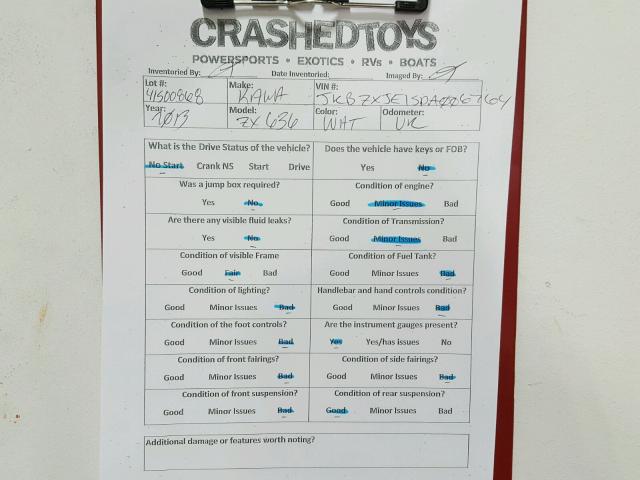 CRASHEDTOYS
POWERSPORTS • EXOTICS • RVs • BOATS
Inventoried By: Date Inventoried: Imaged By:
Lot #: Make: VIN#:
41500868 KAWA
Year: Model: Color: Odometer:
2013 ZX636 WHT UK
What is the Drive Status of the vehicle? Does the vehicle have keys or FOB?
No Start Crank NS Start Drive Yes No
Was a jump box required? Condition of engine?
Yes No Good Minor Issues Bad
Are there any visible fluid leaks? Condition of Transmission?
Yes No Good Minor Issues Bad
Condition of visible Frame Condition of Fuel Tank?
Good Fair Bad Good Minor Issues Bad
Condition of lighting? Handlebar and hand controls condition?
Good Minor Issues Bad Good Minor Issues Bad
Condition of the foot controls? Are the instrument gauges present?
Good Minor Issues Bad Yes Yes/has issues No
Condition of front fairings? Condition of side fairings?
Good Minor Issues Bad Good Minor Issues Bad
Condition of front suspension? Condition of rear suspension?
Good Minor Issues Bad Good Minor Issues Bad
Additional damage or features worth noting?